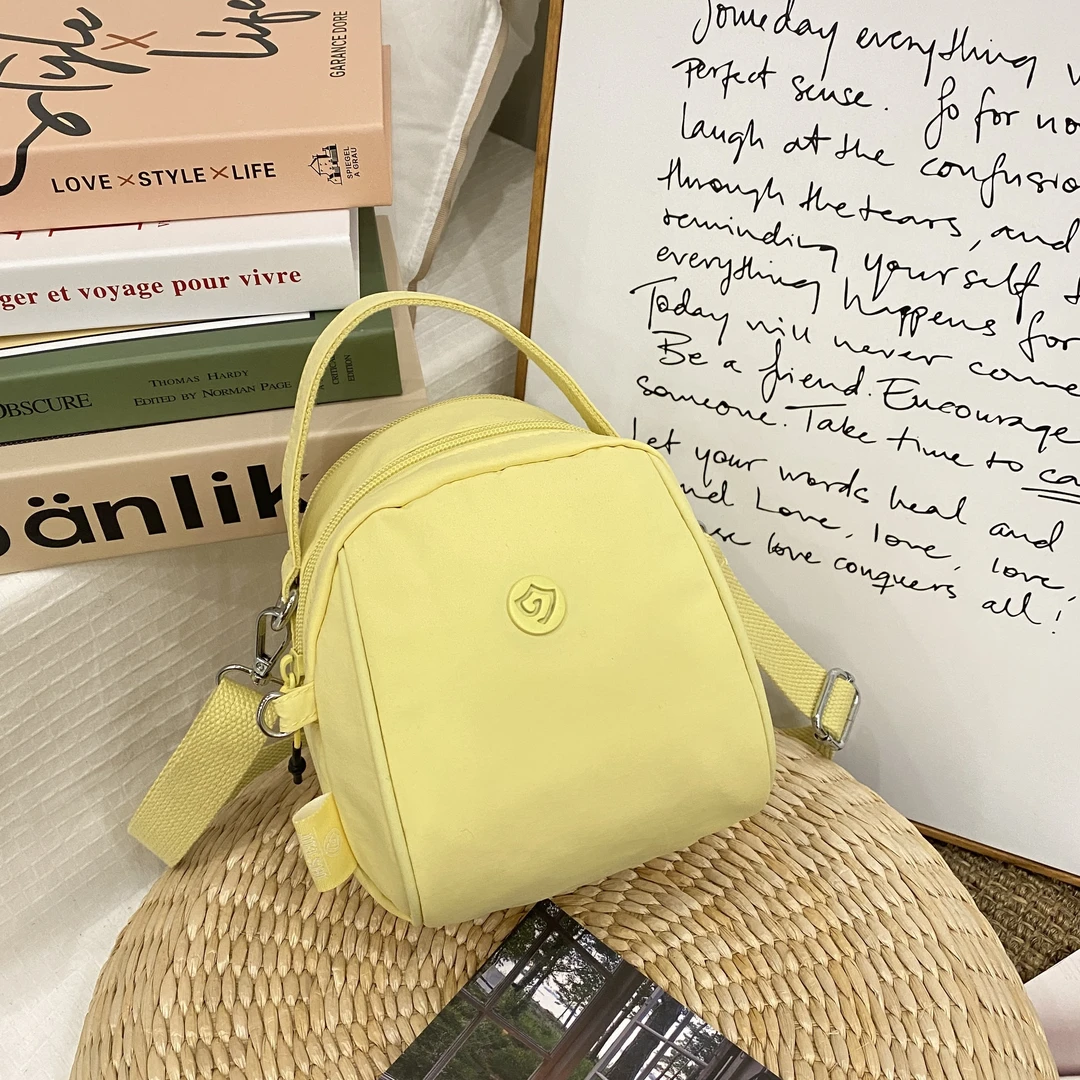 Style × Life
GARANCE DORE
LOVE × STYLE × LIFE
SPIEGEL
& GRAU
ger et voyage pour vivre
OBSCURE
THOMAS HARDY
EDITED BY NORMAN PAGE
CRITICAL
EDITION
änlik
Someday everything
Perfect sense. So for no
laugh at the confusio
through the tears, and
reminding yourself
everything happens for
Today will never come
Be a friend. Encourage
someone. Take time to ca
Let your words heal and
Love, love, love,
love conquers all!